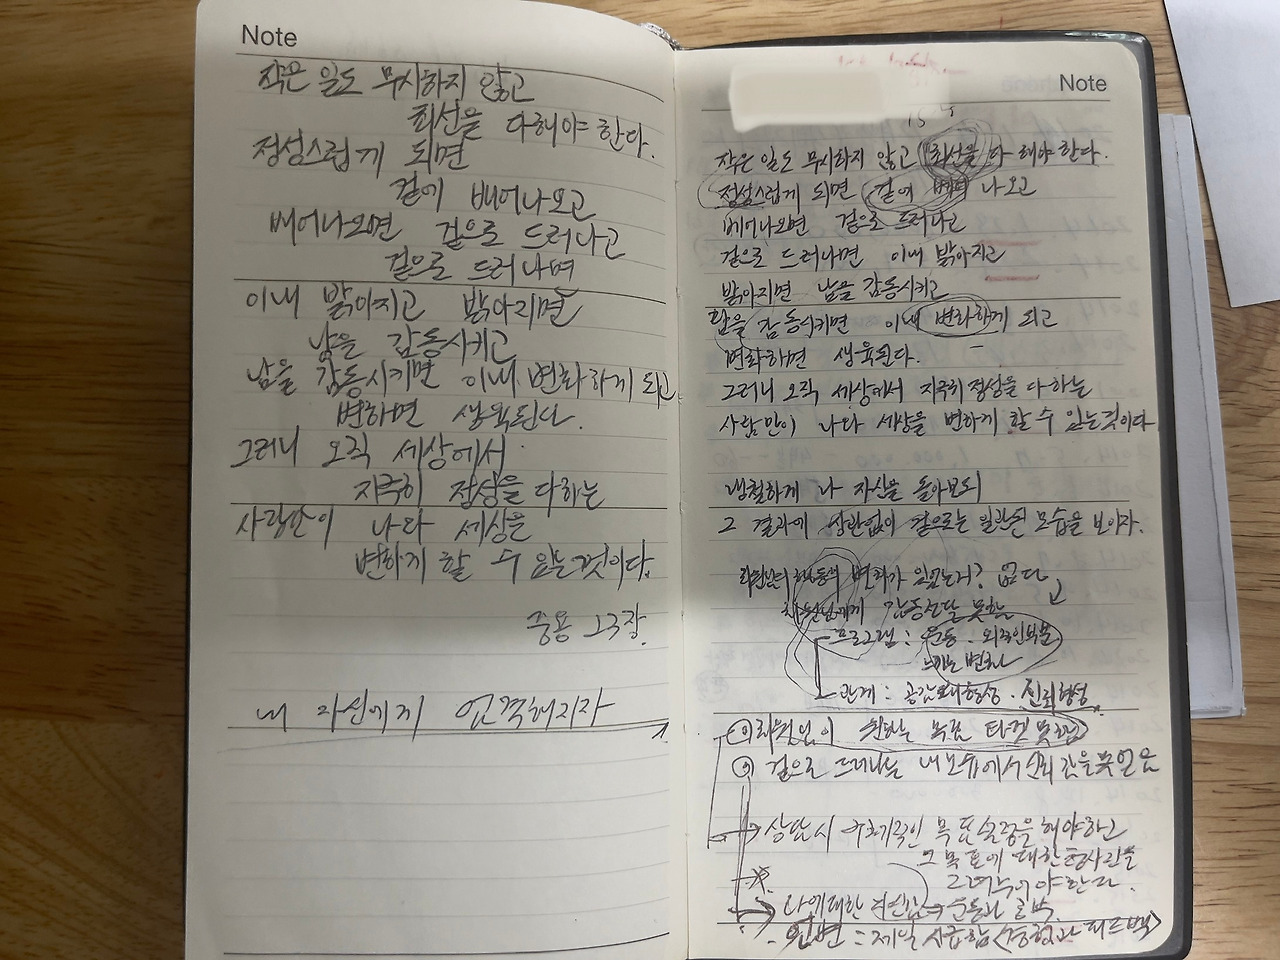 Note
작은 일도 무시하지 않고
최선을 다해야 한다.
정성스럽게 되면
겉에 배어나오고
배어나오면 겉으로 드러나고
겉으로 드러나면
이내 밝아지고 밝아지면
남을 감동시키고
남을 감동시키면 이내 변화하게 되고
변하면 생육된다.
그러니 오직 세상에서
지극히 정성을 다하는
사람만이 나다 세상을
변하게 할 수 있는 것이다.
중용 23장.
내 자신에게 엄격해지자
Note
작은 일도 무시하지 않고 최선을 다 해야 한다.
정성스럽게 되면 겉에 베어 나오고
베어나오면 겉으로 드러나고
겉으로 드러나면 이내 밝아지고
밝아지면 남을 감동시키고
남을 감동시키면 이내 변화하게 되고
변화하면 생육된다.
그러니 오직 세상에서 지극히 정성을 다하는
사람만이 나다 세상을 변하게 할 수 있는 것이다
냉철하게 나 자신을 돌아보되
그 결과에 상관없이 겉으로는 일관된 모습을 보이자.
회원님의 변화가 있었는가? 없다
회원님에게 감동전달 못함
프로그램 : 운동. 외적인부분
느끼는 변화
관계 : 공감대형성. 신뢰형성
회원님이 원하는 목표 타겟 못함
겉으로 드러나는 내 모습에서 신뢰감을 못 얻음
상담시 구체적인 목표설정을 해야하고
그 목표에 대한 청사진을
그려두어야 한다.
나에대한
언변 : 제일 시급함 <경청과 피드백>